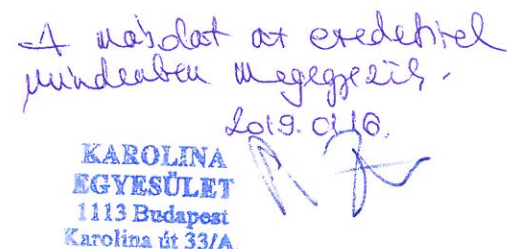 A másolat az eredetivel
mindenben megegyezik.
2019.01.16.
KAROLINA
EGYESÜLET
1113 Budapest
Karolina út 33/A